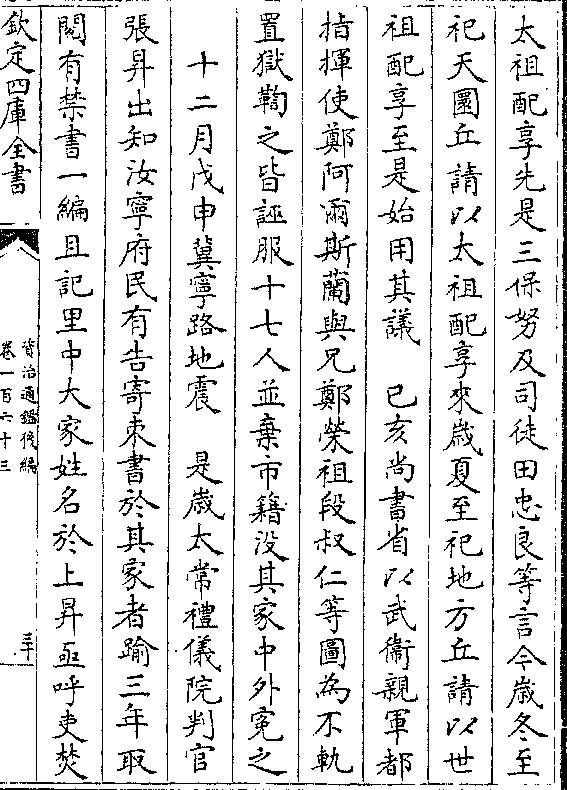 太祖配享先是三保努及司徒田忠良等言今歲冬至
祀天圜丘請以太祖配享來歲夏至祀地方丘請以世
祖配享至是始用其議　己亥尚書省以武衞親軍都
指揮使鄭阿爾斯蘭與兄鄭榮祖段叔仁等圖為不軌
置獄鞫之皆誣服十七人並棄市籍没其家中外寃之
十二月戊申冀寧路地震　是歲太常禮儀院判官
張昇出知汝寧府民有告寄束書於其家者踰三年取
閱有禁書一編且記里中大家姓名於上昇亟呼吏焚
欽定四庫全書
資治通鑑後編
卷一百六十三
三十